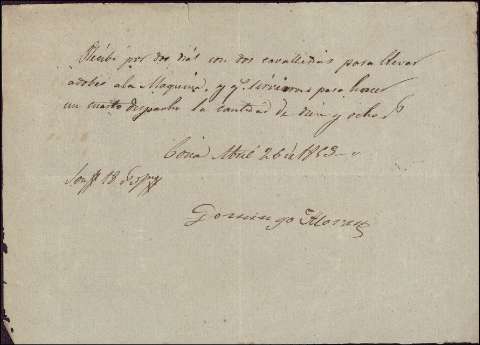 Recibi por dos dias con dos cavallerias para llevar
adobes a la Maquina, y qe sirvieron para hacer
un cuarto despacho la cantidad de diez y ocho rs
Coria Abril 26 de 1853
Son rs 18
Domingo